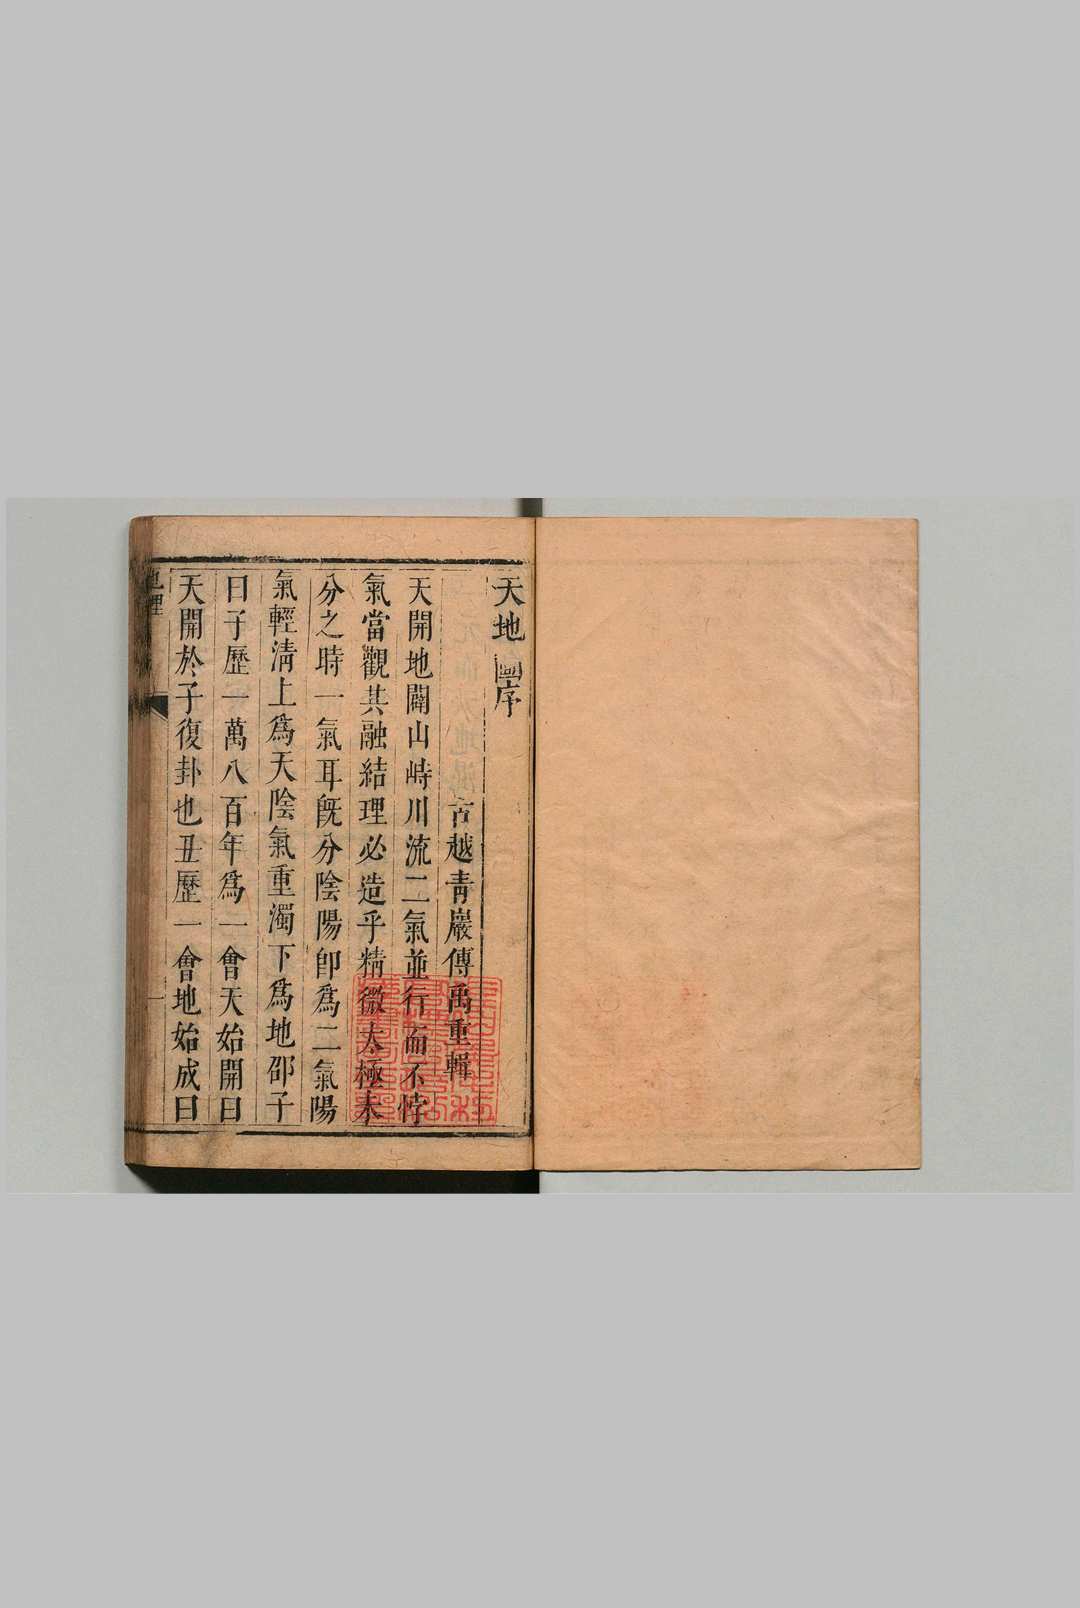 天地圖序
古越青巖傳禹重輯
天開地闢山峙川流二氣並行而不悖
氣當觀其融結理必造乎精微太極未
分之時一氣耳既分陰陽卽爲二氣陽
氣輕清上爲天陰氣重濁下爲地邵子
曰子歷一萬八百年爲一會天始開曰
天開於子復卦也丑歷一會地始成曰
地理